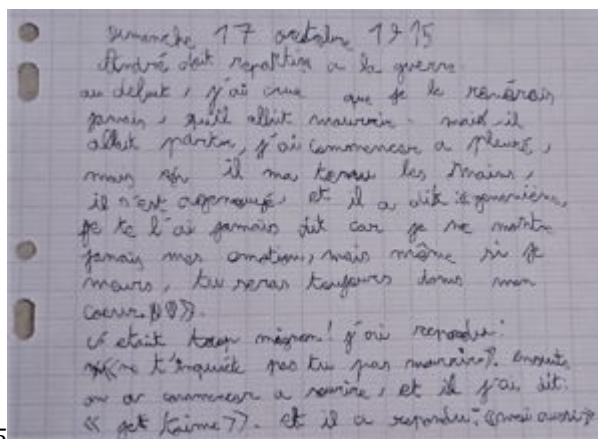 dimanche 17 octobre 1915
André doit repartire a la guerre
au debut, j'ai crue que je le reverais
jamais, qu'il allait mourrir. mais il
allait partir, j'ai commencer a pleuré,
mais il ma tenu les mains,
il s'est agenouyé, et il a dit «genevieve,
je te l'ai jamais dit car je ne montre
jamais mes emotions, mais même si je
meurs, tu seras toujours dans mon
coeur.»
c'etait trop mignon! j'ai repondu:
«ne t'inquiéte pas tu pas mourrir». ensuite,
on a commencer a sourire, et il j'ai dit:
« je t'aime ». et il a repondu: «moi aussi»
5